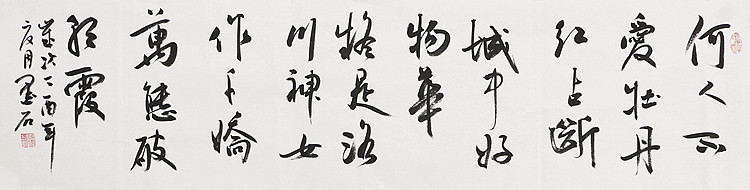 何人不
愛牡丹
红占斷
城中好
物華
疑是洛
川神女
作千嬌
萬態破
朝霞
歲次丁酉年
夏月墨石